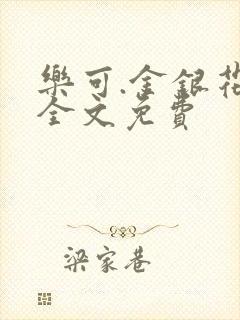 樂可.金銀花
全文免費
梁家巷